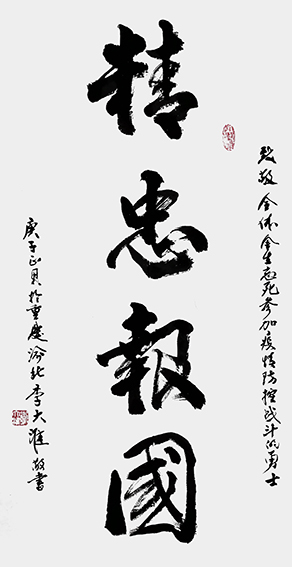 致敬全体舍生忘死参加疫情防控战斗的勇士
精忠報國
庚子正月於重慶渝北李大淮敬書